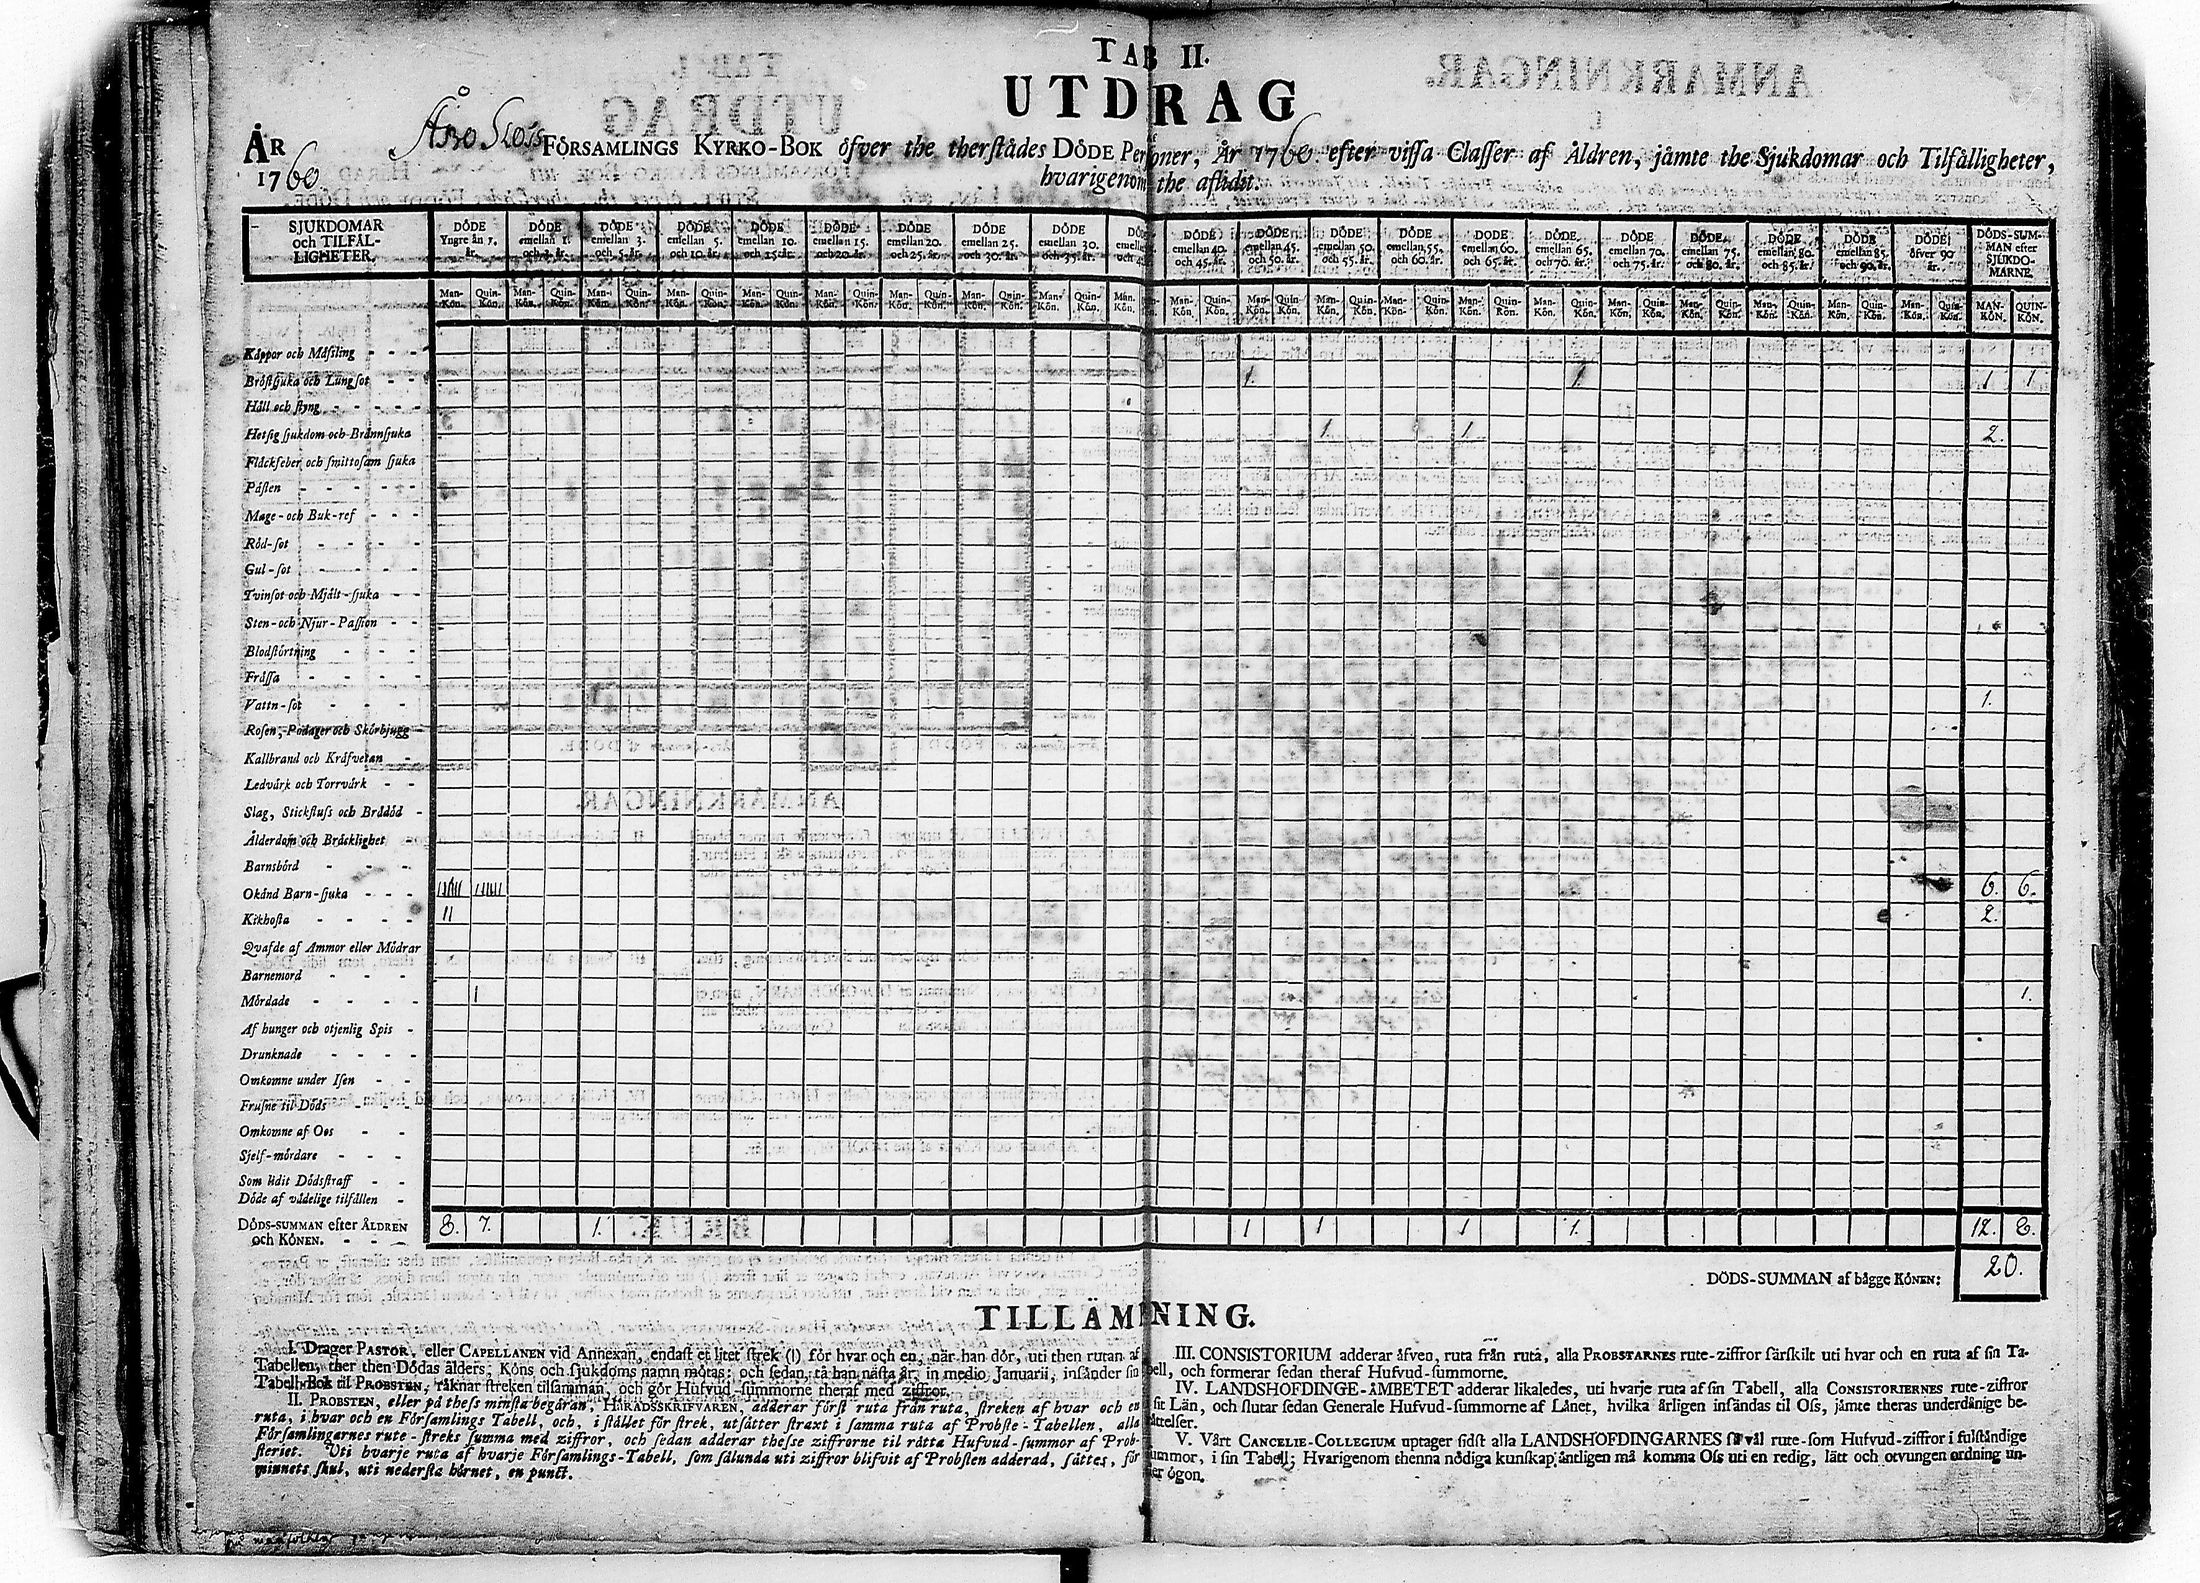 TAB II.
UTDRAG
ÅR
1760
Åbo Slots FÖRSAMLINGS KYRKO-BOK öfver the therstådes DÖDE Personer, År 1760 efter vissa Classer af Åldren, jämte the Sjukdomar och Tilfålligheter,
hvarigenom the aflidit.
SJUKDOMAR och TILFÅL-LIGHETER.
DÖDE Yngre än 1. år.
DÖDE emellan 1. och 3. år.
DÖDE emellan 3. och 5. år.
DÖDE emellan 5. och 10. år.
DÖDE emellan 10. och 15. år.
DÖDE emellan 15. och 20. år.
DÖDE emellan 20. och 25. år.
DÖDE emellan 25. och 30. år.
DÖDE emellan 30. och 35. år.
DÖDE emellan 40. och 45. år.
DÖDE emellan 45. och 50. år.
DÖDE emellan 50. och 55. år.
DÖDE emellan 55. och 60. år.
DÖDE emellan 60. och 65. år.
DÖDE emellan 65. och 70. år.
DÖDE emellan 70. och 75. år.
DÖDE emellan 75. och 80. år.
DÖDE emellan 80. och 85. år.
DÖDE emellan 85. och 90. år.
DÖDE öfver 90 år.
DÖDS-SUM-MAN efter SJUKDO-MARNE.
Man-Kön. Quin-Kön. Man-Kön. Quin-Kön. Man-Kön. Quin-Kön. Man-Kön. Quin-Kön. Man-Kön. Quin-Kön. Man-Kön. Quin-Kön. Man-Kön. Quin-Kön. Man-Kön. Quin-Kön. Man-Kön. Quin-Kön. Man-Kön. Man-Kön. Quin-Kön. Man-Kön. Quin-Kön. Man-Kön. Quin-Kön. Man-Kön. Quin-Kön. Man-Kön. Quin-Kön. Man-Kön. Quin-Kön. Man-Kön. Quin-Kön. Man-Kön. Quin-Kön. Man-Kön. Quin-Kön. Man-Kön. Quin-Kön. Man-Kön. Quin-Kön. MAN-KÖN. QUIN-KÖN.
Kåppor och Måssling - - -
Bröstsjuka och Lungsot - - 1. 1. 1 1
Håll och styng - - - - -
Hetsig sjukdom och Brännsjuka 1. 1. 2.
Fläckfeber och smittosam sjuka
Påsten - - - - -
Mage- och Buk-ref - - -
Röd-sot - - - -
Gul-sot - - - -
Tvinsot och Mjält-sjuka - -
Sten- och Njur-Passion - -
Blodstörtning - - -
Fråssa - - - - -
Vattn-sot - - - 1.
Rosen, Podager och Skörbjugg -
Kallbrand och Kräfvetan -
Ledvärk och Torrvärk - -
Slag, Stickfluss och Brådöd -
Ålderdom och Bräcklighet -
Barnsbörd - - - -
Okånd Barn-sjuka - - - 6. 6.
Kikhosta - - - - 11 2.
Qvafde af Ammor eller Mödrar
Barnemord - - - -
Mördade - - - - 1 1.
Af hunger och otjenlig Spis -
Drunknade - - - -
Omkomne under Isen - -
Frusne til Döds - - -
Omkomne af Oos - -
Sjelf-mördare - - -
Som lidit Dödsstraff - -
Döde af vådelige tilfällen -
DÖDS-SUMMAN efter ÅLDREN 8. 7. 1. 1 1 1 1. 12. 8.
och KÖNEN. - - -
DÖDS-SUMMAN af bägge KÖNEN: 20.
TILLÄMNING.
I. Drager PASTOR, eller CAPELLANEN vid Annexan, endast et litet strek (I) för hvar och en, när han dör, uti then rutan af
Tabellen, ther then Dödas ålders, Köns och sjukdoms namn mötas: och sedan, tå han nästa år, in medio Januarii, insänder sin
Tabell-Bok til PROBSTEN, räknar streken tilsamman, och gör Hufvud-summorne theraf med ziffror.
II. PROBSTEN, eller på thess minsta begäran, HÄRADSSKRIFVAREN, adderar först ruta från ruta, streken af hvar och en
ruta, i hvar och en Församlings Tabell, och, i stället för strek, utsätter straxt i samma ruta af Probste-Tabellen, alla
Församlingarnes rute-streks summa med ziffror, och sedan adderar thesse ziffrorne til rätta Hufvud-summor af Prob-
steriet. Uti hvarje ruta af hvarje Församlings-Tabell, som sålunda uti ziffror blifvit af Probsten adderad, sättes, för
minnets skul, uti nedersta hörnet, en punct.
III. CONSISTORIUM adderar äfven, ruta från ruta, alla PROBSTARNES rute-ziffror särskilt uti hvar och en ruta af sin Ta-
bell, och formerar sedan theraf Hufvud-summorne.
IV. LANDSHÖFDINGE-ÄMBETET adderar likaledes, uti hvarje ruta af sin Tabell, alla CONSISTORIERNES rute-ziffror
sit Län, och slutar sedan Generale Hufvud-summorne af Länet, hvilka årligen insändas til Oss, jämte theras underdånige be-
rättelser.
V. Vårt CANCELIE-COLLEGIUM uptager sidst alla LANDSHÖFDINGARNES så väl rute-som Hufvud-ziffror i fulständige
summor, i sin Tabell; Hvarigenom thenna nödiga kunskap äntligen må komma Oss uti en redig, lätt och otvungen ordning un-
der ögon.